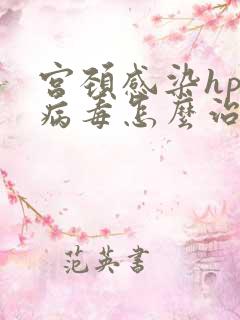 宮頸感染hp
病毒怎麼治
范英書